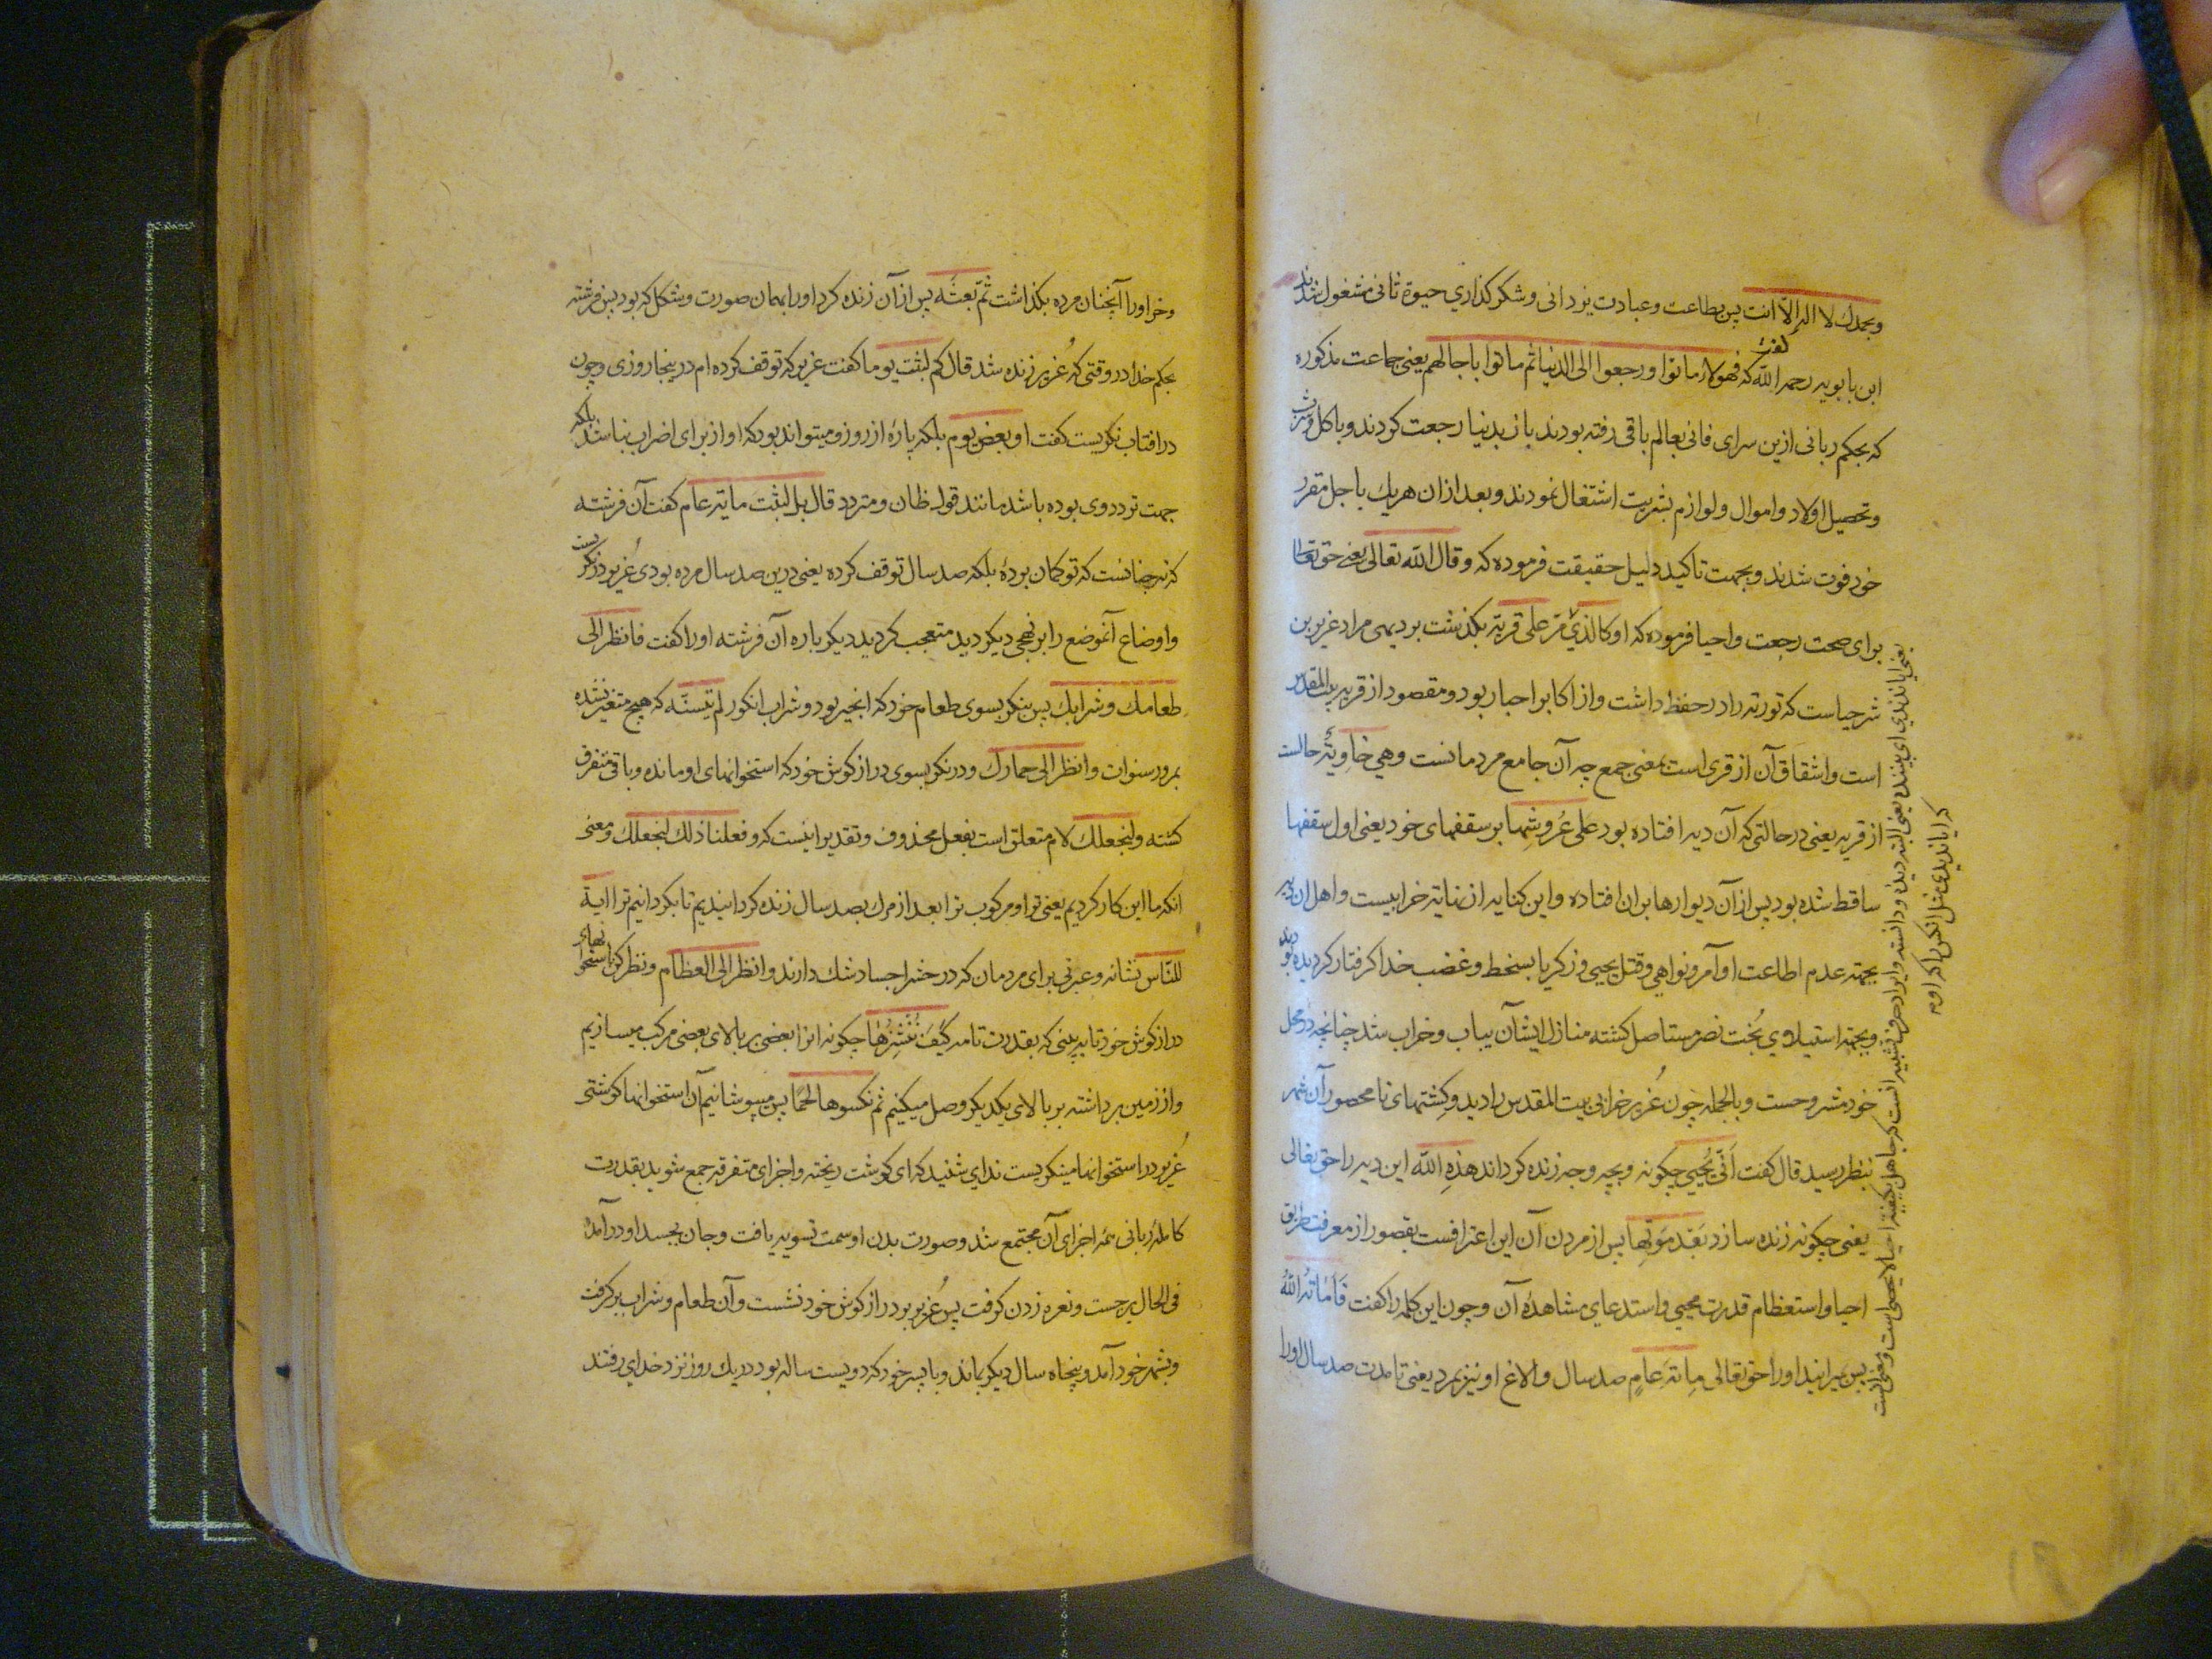 وبحمدك لا اله الا انت پس بطاعت وعبادت یزدانی وشکر کذاری حیوة ثانی مشغول شدند
ابن بابویه رحمه الله گفت که فهولاء ماتوا ورجعوا الی الدنیا ثم ماتوا باجالهم یعنی جماعت مذکوره
که بحکم ربانی ازین سرای فانی بعالم باقی رفته بودند باز بدنیا رجعت کردند وباکل وشرب
وتحصیل اولاد واموال ولوازم بشریت اشتغال نمودند وبعد ازان هریك باجل مقرر
خود فوت شدند وبجهت تاکید دلیل حقیقت فرموده که وقال الله تعالی یعنی حق تعالی
برای صحت رجعت واحیا فرموده که اوکالذی مر علی قریة بکذشت بردیهی مراد عزیر بن
شرحیاست که توریة را در حفظ داشت واز اکابر احبار بود ومقصود از قریه بیت المقدس
است واشتقاق آن از قری است بمعنی جمع چه آن جامع مردمانست وهی خاویة حالست
از قریه یعنی درحالتی که آن دیه افتاده بود علی عُروشِها بر سقفهای خود یعنی اول سقفها
ساقط شده بود پس از آن دیوارها بران افتاده واین کنایه از نهایة خرابیست واهل ان دیه
بجهة عدم اطاعت اوامر ونواهی وقتل یحیی وزکریا بسخط وغضب خدا کرفتار کردیده بودند
وبجهة استیلای بُخت نصر مستاصل کشته منازل ایشان یباب وخراب شد چنانچه در محل
خود مشروحست وبالجمله چون عُزیر خرابی بیت المقدس را دید وکشتهای نامحصور آن شهر
بنظر رسید قال کفت اَنّی یُحیی چکونه وبچه وجه زنده کرداند هذِهِ اللّه این دیه را حق تعالی
یعنی چکونه زنده سازد بَعْدَ مَوْتِها پس از مردن آن این اعترافست بقصور از معرفت طریق
احیا واستعظام قدرت محیی واستدعای مشاهدهٔ آن وچون این کلمه را کفت فَاَماتَهُ اللّهُ
پس بمیرانید اورا حق تعالی مِائَةَ عامٍ صد سال والاغ او نیز بمرد یعنی تا مدت صد سال اورا
یعنی ایا ندیدی ای بیننده یعنی البته دیدهٔ ودانستهٔ وایراد حرف تشبیه انست که جاهل بکیفیت احیا لایحصی است ومعنی انست
که ایا ندیدی مثل انکس را که او
وخر اورا آنچنان مرده بکذاشت ثمّ بعثَه پس از آن زنده کرد اورا بهمان صورت وشکل که بود پس فرشته
بحکم خدا در وقتی که عُزیر زنده شد قال کم لبثت یوما کفت عزیر که توقف کرده ام درینجا روزی وچون
در افتاب نکریست کفت او بعض یوم بلکه پارهٔ از روز ومیتواند بود که او از برای اضراب نباشد بلکه
جهت تردد وی بوده باشد مانند قول ظان ومتردد قال بل لبثت مایة عام کفت آن فرشته
که نه چنانست که توکمان بردهٔ بلکه صد سال توقف کرده یعنی درین صد سال مرده بودی عُزیر در نکریست
واوضاع آنموضع را بر نهجی دیکر دید متعجب کردید دیکر باره آن فرشته اورا کفت فانظر الی
طعامك وشرابك پس بنکر بسوی طعام خود که انجیر بود وشراب انکور لم یتسنّه که هیچ متغیر نشده
بمرور سنوات وانظر الی حمارك ودر نکر بسوی دراز کوش خود که استخوانهای او مانده وباقی متفرق
کشته ولنجعلك لام متعلق است بفعل محذوف وتقدیر اینست که وفعلنا ذلك لنجعلك ومعنی
انکه ما این کار کردیم یعنی تو ومرکوب ترا بعد از مرك بصد سال زنده کردانیدیم تا بکردانیم ترا ایة
للنّاس نشانه وعبرتی برای مردمان که در حشر اجساد شك دارند وانظر الی العظام ونظر کن استخوانهای
دراز کوش خود تا به بینی که بقدرت تامه کَیْفَ نُنْشِزُها چکونه انرا بعضی بر بالای بعضی مرکب میسازیم
واز زمین برداشته بر بالای یکدیکر وصل میکنیم ثم نکسوها لحمًا پس میپوشانیم آن استخوانها کوشتی
عُزیر در استخوانها مینکریست ندای شنید که ای کوشت ریخته واجزای متفرقه جمع شوید بقدرت
کاملهٔ ربانی همهٔ اجزای آن مجتمع شد وصورت بدن او سمت تسویه یافت وجان بجسد او درآمده
فی الحال برجست ونعره زدن کرفت پس عُزیر بر دراز کوش خود نشست وآن طعام وشراب برکرفت
وبشهر خود آمد وپنجاه سال دیکر بماند وبا پسر خود که دویست ساله بود در یك روز نزد خدای رفتند